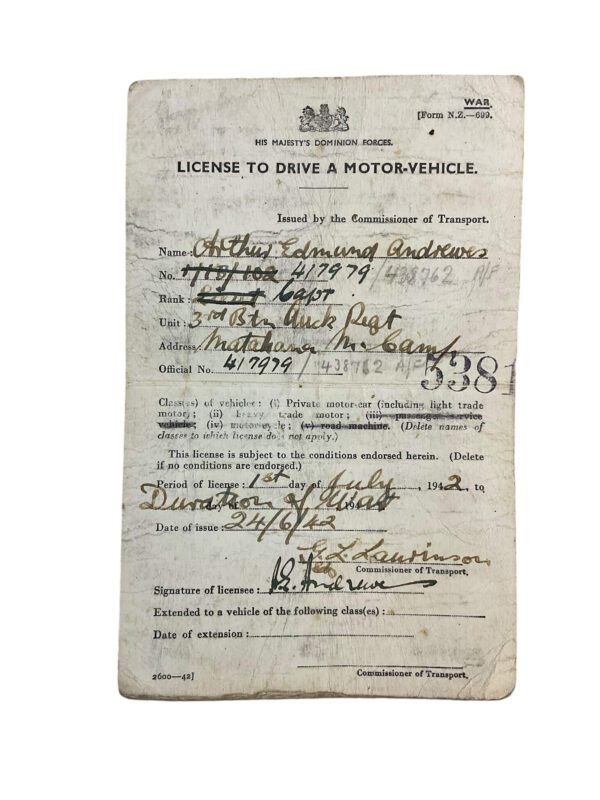 WAR.
[Form N.Z.—699.
HIS MAJESTY'S DOMINION FORCES.
LICENSE TO DRIVE A MOTOR-VEHICLE.
Issued by the Commissioner of Transport.
Name: Arthur Edmund Andrewes
No. 1/18/102 417979 /438762 A/F
Rank: Lieut Capt
Unit: 3rd Btn Auck Regt
Address: Matakana M. Camp
Official No. 417979 /438762 A/F
5381
Class(es) of vehicles: (i) Private motor-car (including light trade
motor; (ii) heavy trade motor; (iii) passenger-service
vehicle; (iv) motor-cycle; (v) road machine. (Delete names of
classes to which license does not apply.)
This license is subject to the conditions endorsed herein. (Delete
if no conditions are endorsed.)
Period of license: 1st day of July, 1942, to
Duration of War 194
Date of issue: 24/6/42
G. L. Laurinson
Commissioner of Transport.
Signature of licensee: A.E. Andrewes
Extended to a vehicle of the following class(es):
Date of extension:
Commissioner of Transport.
2600—42]